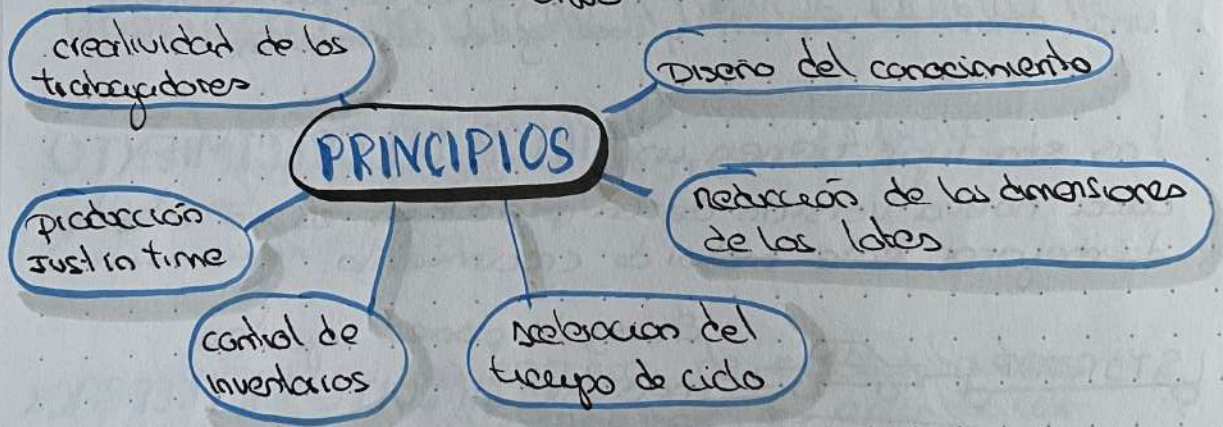 creatividad de los
trabajadores
Diseño del conocimiento
PRINCIPIOS
reducción de las dimensiones
de los lotes
producción
Just in time
control de
inventarios
aceleracion del
tiempo de ciclo